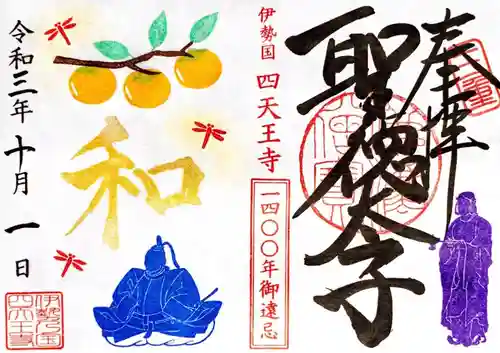 奉拝
聖徳太子
伊勢国 四天王寺
一四〇〇年御遠忌
和
令和三年十月一日
伊勢乃国
四天王寺